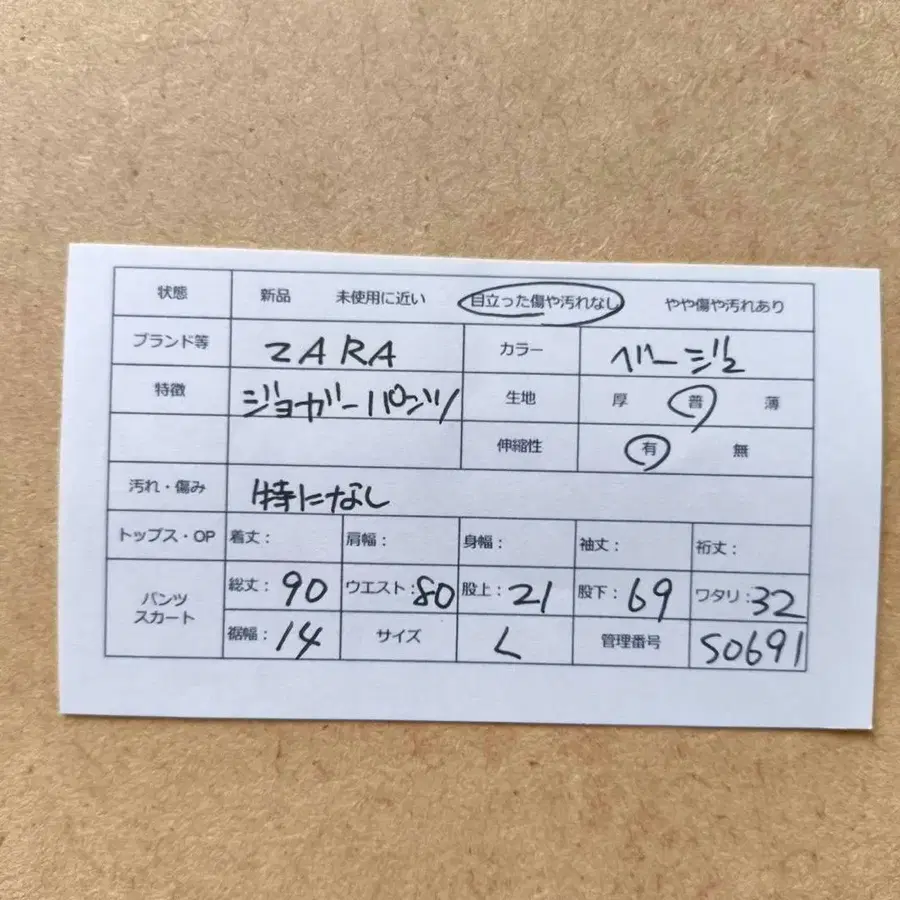 状態 新品 未使用に近い 目立った傷や汚れなし やや傷や汚れあり
ブランド等 ZARA カラー ベージュ
特徴 ジョガーパンツ 生地 厚 普 薄
伸縮性 有 無
汚れ・傷み 特になし
トップス・OP 着丈: 肩幅: 身幅: 袖丈: 裄丈:
パンツ スカート 総丈:90 ウエスト:80 股上:21 股下:69 ワタリ:32
裾幅:14 サイズ L 管理番号 S0691